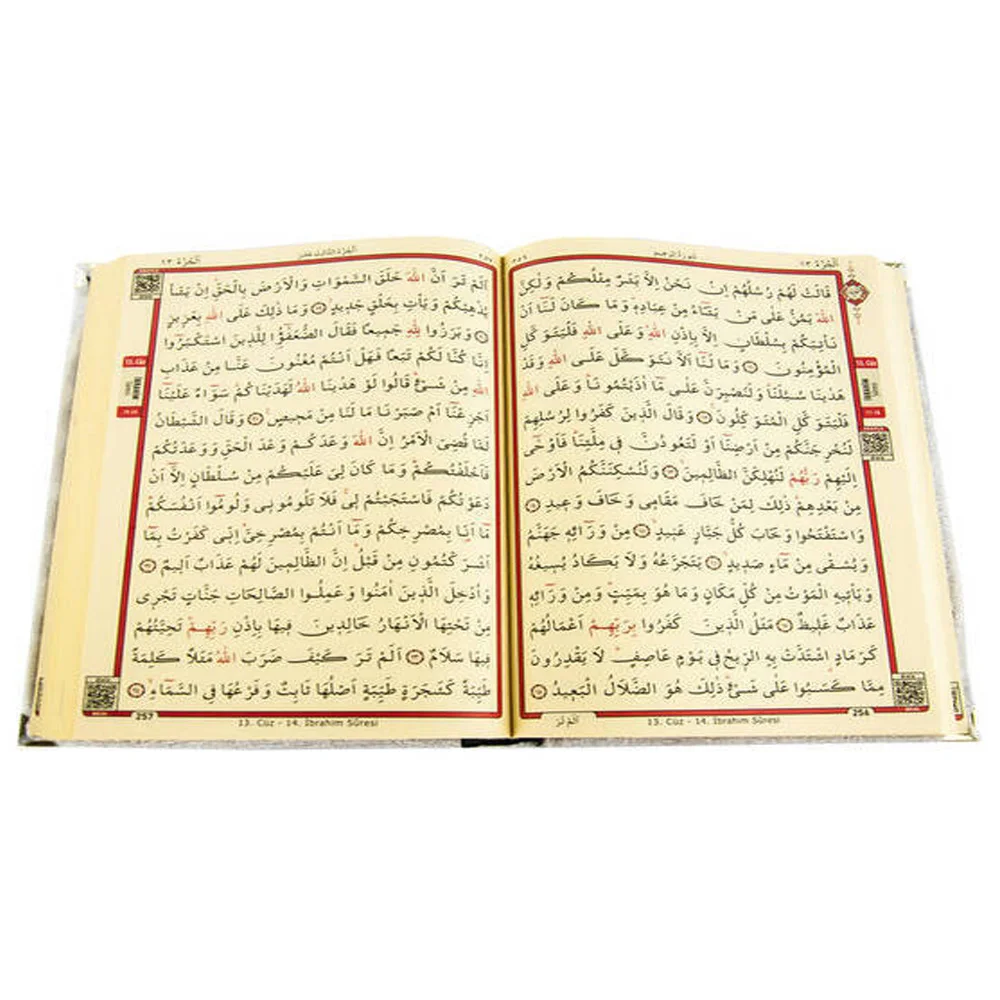 اَلْجُزْءُ ١٣
سُورَةُ اِبْرٰهِيمَ
٢٥٦
قَالَتْ لَهُمْ رُسُلُهُمْ اِنْ نَحْنُ اِلَّا بَشَرٌ مِثْلُكُمْ وَلٰكِنَّ
اللّٰهَ يَمُنُّ عَلٰى مَنْ يَشَٓاءُ مِنْ عِبَادِهِۜ وَمَا كَانَ لَنَٓا اَنْ
نَأْتِيَكُمْ بِسُلْطَانٍ اِلَّا بِاِذْنِ اللّٰهِۜ وَعَلَى اللّٰهِ فَلْيَتَوَكَّلِ
الْمُؤْمِنُونَ ﴿١١﴾ وَمَا لَنَٓا اَلَّا نَتَوَكَّلَ عَلَى اللّٰهِ وَقَدْ
هَدٰينَا سُبُلَنَاۜ وَلَنَصْبِرَنَّ عَلٰى مَٓا اٰذَيْتُمُونَاۜ وَعَلَى اللّٰهِ
فَلْيَتَوَكَّلِ الْمُتَوَكِّلُونَ ﴿١٢﴾ وَقَالَ الَّذِينَ كَفَرُوا لِرُسُلِهِمْ
لَنُخْرِجَنَّكُمْ مِنْ اَرْضِنَٓا اَوْ لَتَعُودُنَّ فِي مِلَّتِنَاۜ فَاَوْحٰٓى
اِلَيْهِمْ رَبُّهُمْ لَنُهْلِكَنَّ الظَّالِمِينَ ﴿١٣﴾ وَلَنُسْكِنَنَّكُمُ الْاَرْضَ
مِنْ بَعْدِهِمْۜ ذٰلِكَ لِمَنْ خَافَ مَقَامِي وَخَافَ وَعِيدِ ﴿١٤﴾
وَاسْتَفْتَحُوا وَخَابَ كُلُّ جَبَّارٍ عَنِيدٍ ﴿١٥﴾ مِنْ وَرَٓائِهِ جَهَنَّمُ
وَيُسْقٰى مِنْ مَٓاءٍ صَدِيدٍ ﴿١٦﴾ يَتَجَرَّعُهُ وَلَا يَكَادُ يُسِيغُهُ
وَيَأْتِيهِ الْمَوْتُ مِنْ كُلِّ مَكَانٍ وَمَا هُوَ بِمَيِّتٍۜ وَمِنْ وَرَٓائِهِ
عَذَابٌ غَلِيظٌ ﴿١٧﴾ مَثَلُ الَّذِينَ كَفَرُوا بِرَبِّهِمْ اَعْمَالُهُمْ
كَرَمَادٍ اشْتَدَّتْ بِهِ الرِّيحُ فِي يَوْمٍ عَاصِفٍۜ لَا يَقْدِرُونَ
مِمَّا كَسَبُوا عَلٰى شَيْءٍۜ ذٰلِكَ هُوَ الضَّلَالُ الْبَعِيدُ ﴿١٨﴾
اَلَمْ تَرَ
13. Cüz - 14. İbrahim Sûresi
256
13. Cüz
اَلْجُزْءُ الثَّالِثَ عَشَرَ
اَلْجُزْءُ ١٣
٢٥٧
اَلَمْ تَرَ اَنَّ اللّٰهَ خَلَقَ السَّمٰوَاتِ وَالْاَرْضَ بِالْحَقِّۜ اِنْ يَشَأْ
يُذْهِبْكُمْ وَيَأْتِ بِخَلْقٍ جَدِيدٍ ﴿١٩﴾ وَمَا ذٰلِكَ عَلَى اللّٰهِ بِعَزِيزٍ
﴿٢٠﴾ وَبَرَزُوا لِلّٰهِ جَمِيعًا فَقَالَ الضُّعَفٰٓؤُا لِلَّذِينَ اسْتَكْبَرُٓوا
اِنَّا كُنَّا لَكُمْ تَبَعًا فَهَلْ اَنْتُمْ مُغْنُونَ عَنَّا مِنْ عَذَابِ
اللّٰهِ مِنْ شَيْءٍۜ قَالُوا لَوْ هَدٰينَا اللّٰهُ لَهَدَيْنَاكُمْۜ سَوَٓاءٌ عَلَيْنَٓا
اَجَزِعْنَٓا اَمْ صَبَرْنَا مَا لَنَا مِنْ مَحِيصٍ ﴿٢١﴾ وَقَالَ الشَّيْطَانُ
لَمَّا قُضِيَ الْاَمْرُ اِنَّ اللّٰهَ وَعَدَكُمْ وَعْدَ الْحَقِّ وَوَعَدْتُكُمْ
فَاَخْلَفْتُكُمْۜ وَمَا كَانَ لِيَ عَلَيْكُمْ مِنْ سُلْطَانٍ اِلَّٓا اَنْ
دَعَوْتُكُمْ فَاسْتَجَبْتُمْ لِيۚ فَلَا تَلُومُونِي وَلُومُٓوا اَنْفُسَكُمْۜ
مَٓا اَنَا بِمُصْرِخِكُمْ وَمَٓا اَنْتُمْ بِمُصْرِخِيَّۜ اِنِّي كَفَرْتُ بِمَٓا
اَشْرَكْتُمُونِ مِنْ قَبْلُۜ اِنَّ الظَّالِمِينَ لَهُمْ عَذَابٌ اَلِيمٌ ﴿٢٢﴾
وَاُدْخِلَ الَّذِينَ اٰمَنُوا وَعَمِلُوا الصَّالِحَاتِ جَنَّاتٍ تَجْرِي
مِنْ تَحْتِهَا الْاَنْهَارُ خَالِدِينَ فِيهَا بِاِذْنِ رَبِّهِمْۜ تَحِيَّتُهُمْ
فِيهَا سَلَامٌ ﴿٢٣﴾ اَلَمْ تَرَ كَيْفَ ضَرَبَ اللّٰهُ مَثَلًا كَلِمَةً
طَيِّبَةً كَشَجَرَةٍ طَيِّبَةٍ اَصْلُهَا ثَابِتٌ وَفَرْعُهَا فِي السَّمَٓاءِۙ
257
13. Cüz - 14. İbrahim Sûresi
13. Cüz